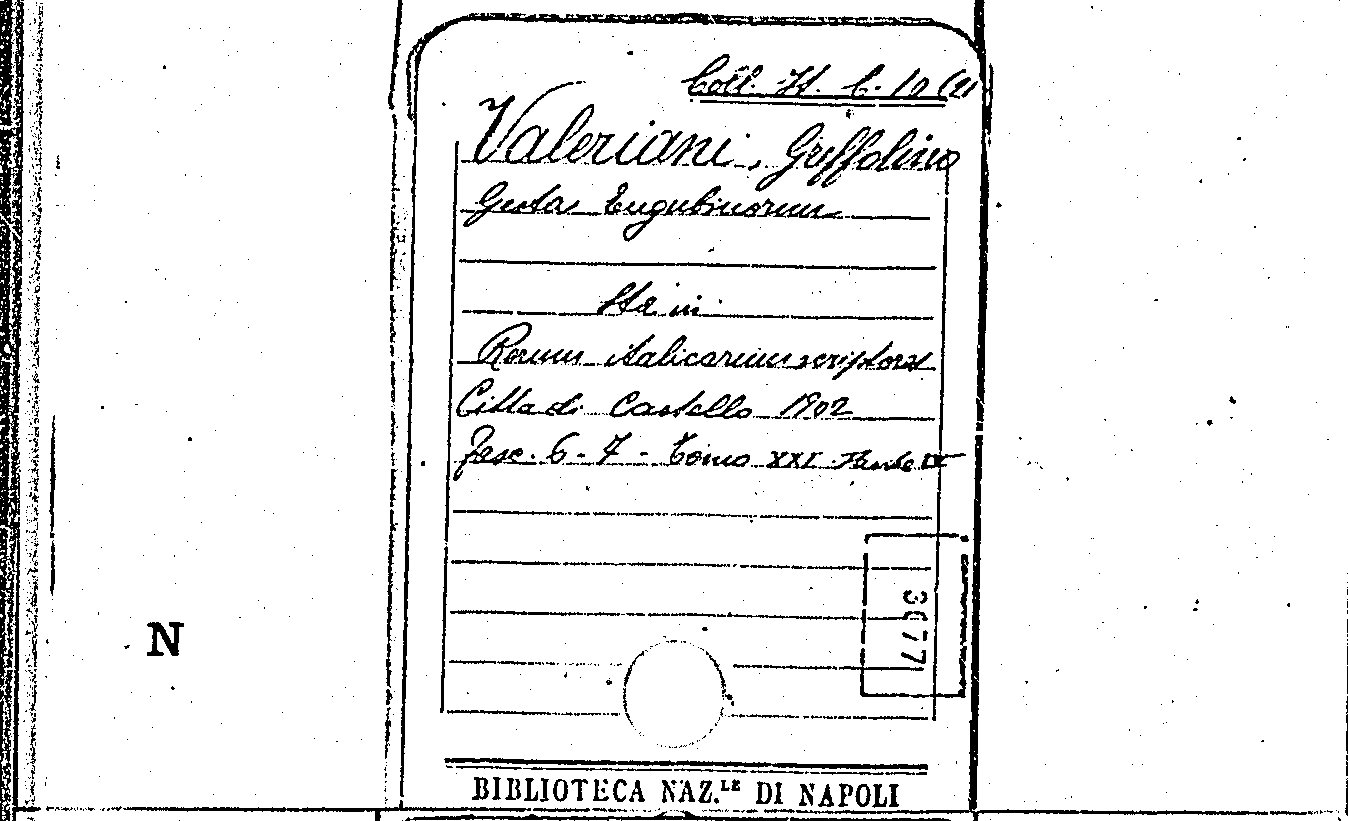 Coll. It. C. 10 (21
Valeriani, Greffolino
Gesta Eugubinorum
Sta in
Rerum italicarum scriptores
Città di Castello 1902
fasc. 6-7 - Tomo XXI Parte IV
3077
N
BIBLIOTECA NAZ.LE DI NAPOLI